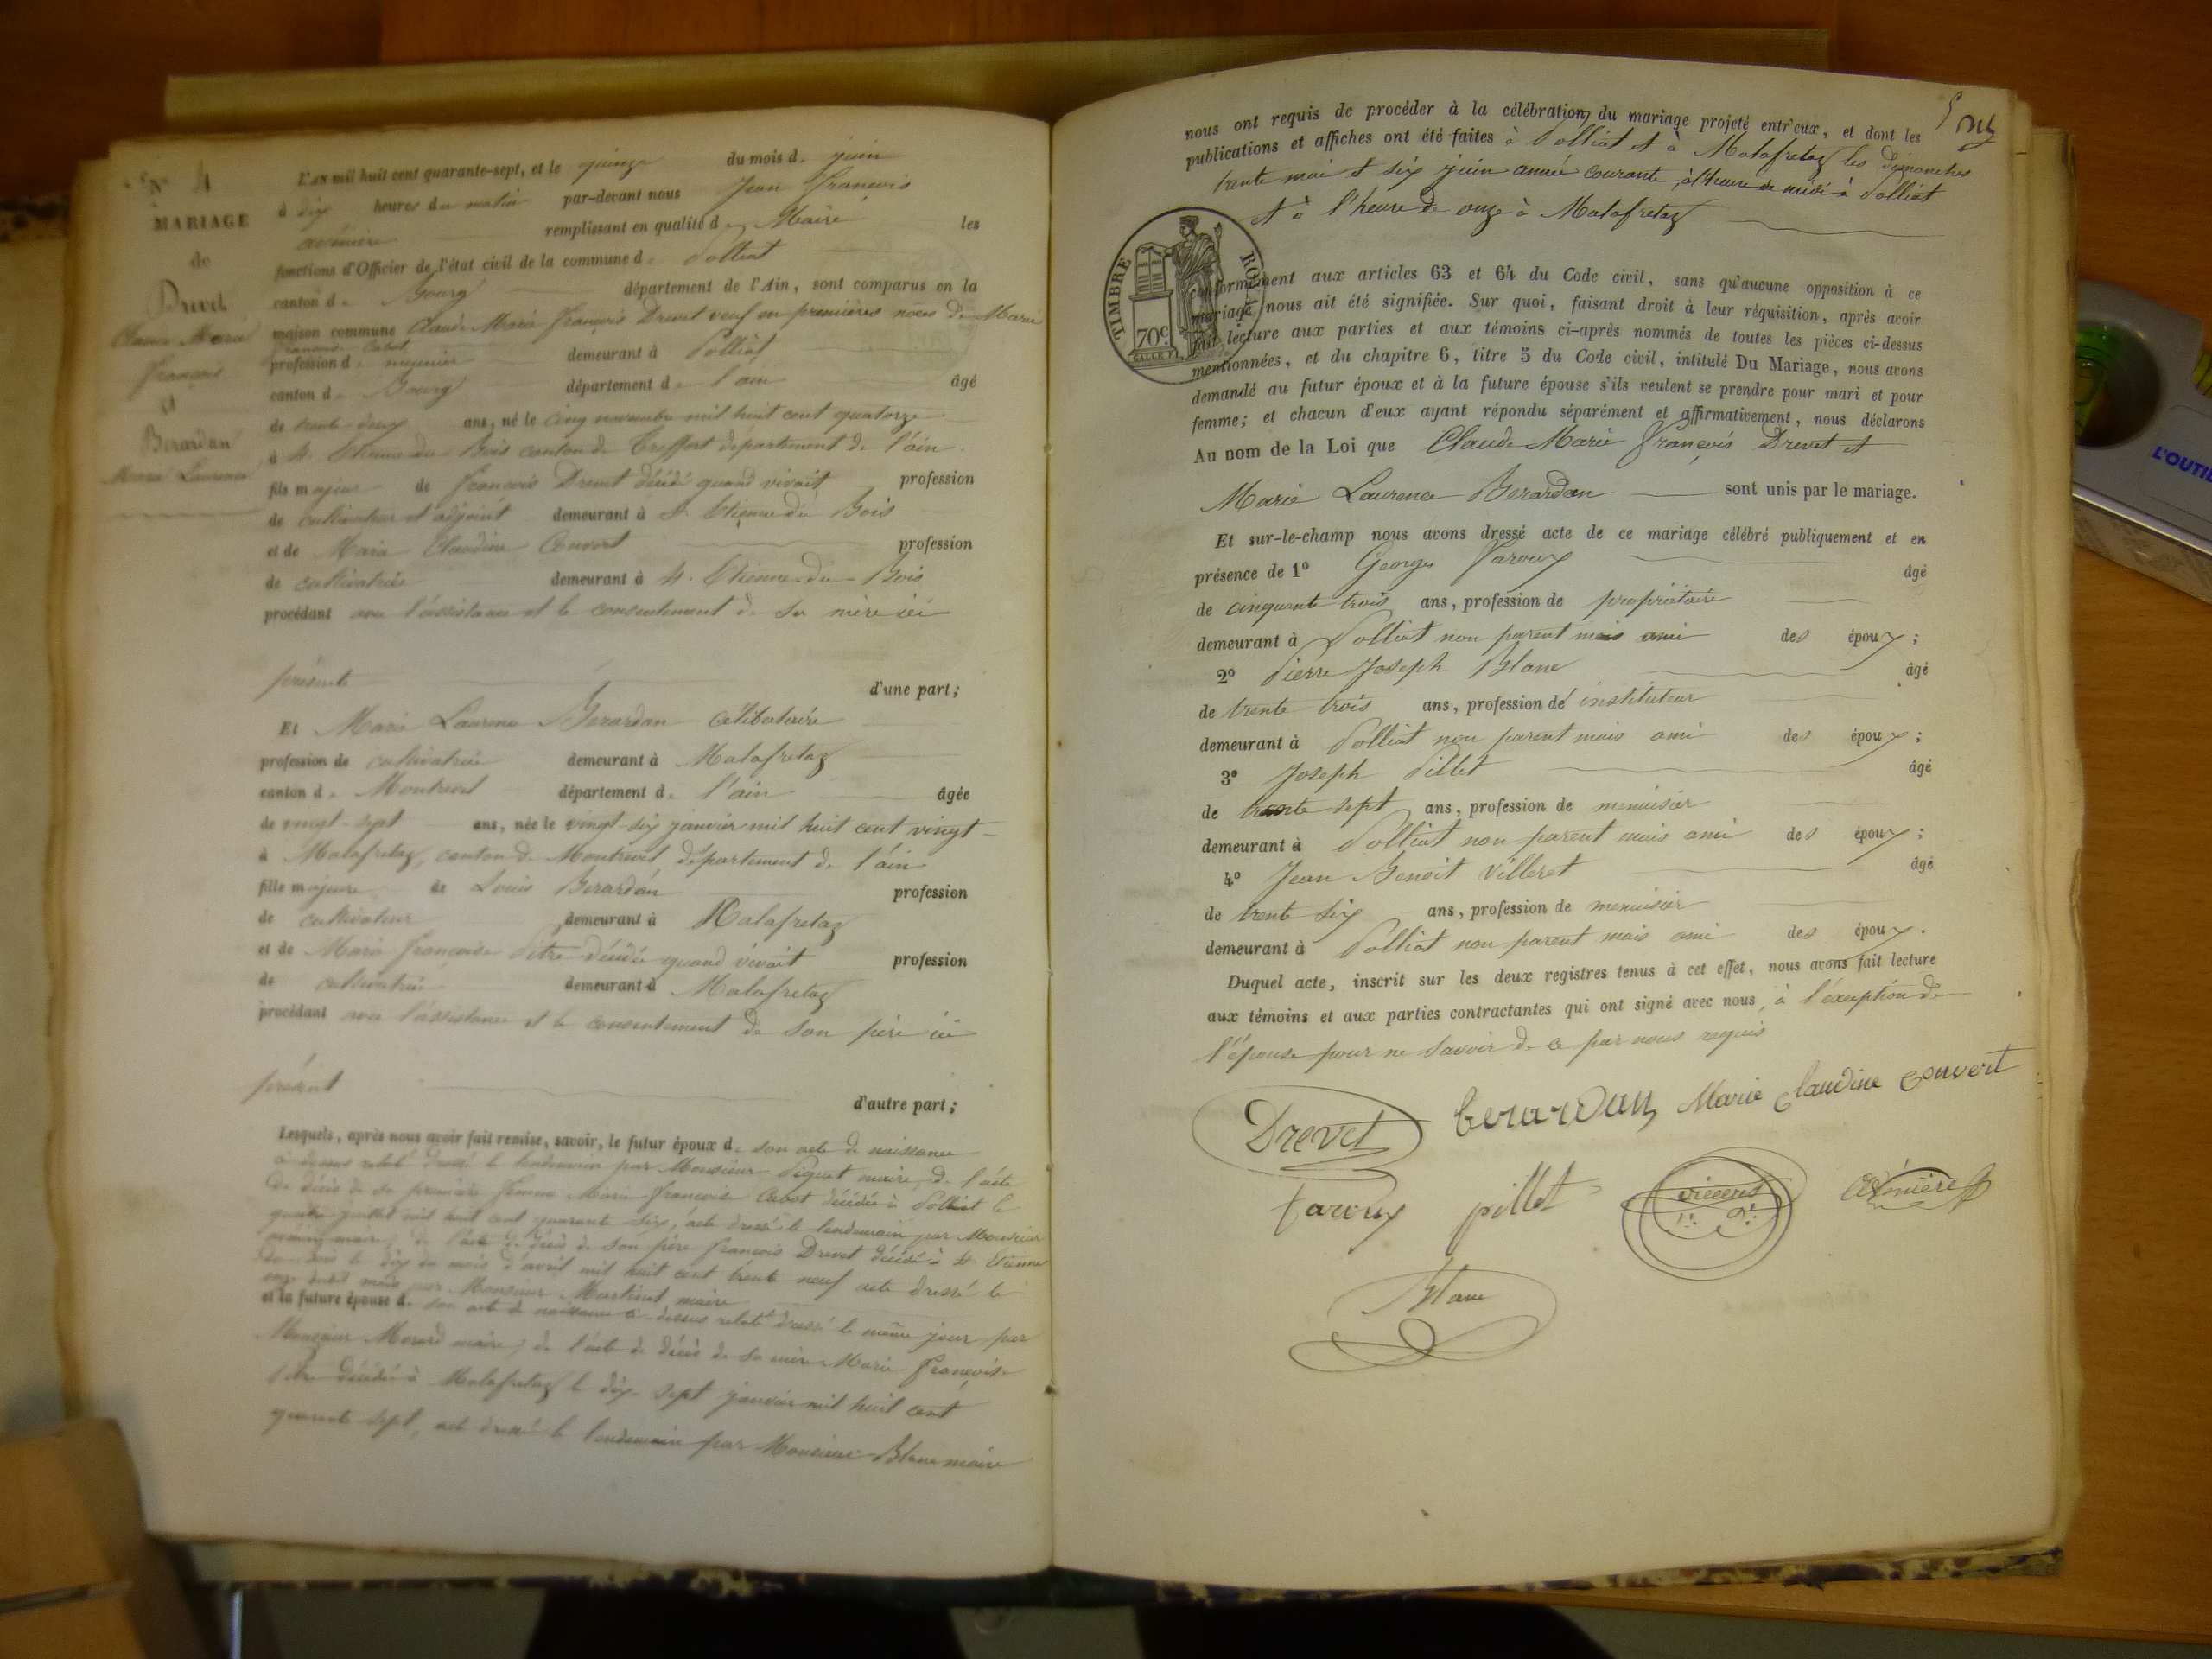 N° 4
MARIAGE
de
Drevet
Claude Marie
François
et
Berardan
Marie Laurence
L'AN mil huit cent quarante-sept, et le quinze du mois de juin
à dix heures du matin par-devant nous Jean François
remplissant en qualité de Maire les
fonctions d'Officier de l'état civil de la commune de Polliat
canton de Bourg département de l'Ain, sont comparus en la
maison commune Claude Marie François Drevet veuf en premières noces de Marie
françoise Cabot
profession de meunier demeurant à Polliat
canton de Bourg département de l'ain âgé
de trente-deux ans, né le cinq novembre mil huit cent quatorze
à St. Etienne du Bois canton de Treffort département de l'ain
fils majeur de François Drevet décédé quand vivait profession
de cultivateur et adjoint demeurant à St Etienne du Bois
et de Marie Claudine Convert profession
de cultivatrice demeurant à St. Etienne-du-Bois
procédant avec l'assistance et le consentement de sa mère ici
présente d'une part;
Et Marie Laurence Berardan célibataire
profession de cultivatrice demeurant à Malafretaz
canton de Montrevel département de l'ain âgée
de vingt-sept ans, née le vingt-six janvier mil huit cent vingt
à Malafretaz, canton de Montrevel, département de l'ain
fille majeure de Louis Berardan profession
de cultivateur demeurant à Malafretaz
et de Marie françoise Pitre décédée quand vivait profession
de cultivatrice demeurant à Malafretaz
procédant avec l'assistance et le consentement de son père ici
présent d'autre part;
Lesquels, après nous avoir fait remise, savoir, le futur époux de son acte de naissance
ci-dessus relaté dressé le lendemain par Monsieur Piquet maire, de l'acte
de décès de sa première femme Marie françoise Cabot décédée à Polliat le
quatre juillet mil huit cent quarante six, acte dressé le lendemain par Monsieur
maire, de l'acte de décès de son père françois Drevet décédé à St Etienne
du Bois le dix du mois d'avril mil huit cent trente neuf acte dressé le
onze dudit mois par Monsieur Martinet maire
et la future épouse de son acte de naissance ci-dessus relaté dressé le même jour par
Monsieur Morard maire; de l'acte de décès de sa mère Marie françoise
Pitre décédée à Malafretaz le dix-sept janvier mil huit cent
quarante sept, acte dressé le lendemain par Monsieur Blanc maire
nous ont requis de procéder à la célébration du mariage projeté entr'eux, et dont les
publications et affiches ont été faites à Polliat et à Malafretaz les dimanches
trente mai et six juin année courante, à l'heure de midi à Polliat
et à l'heure de onze à Malafretaz
TIMBRE ROYAL
70 c.
conformément aux articles 63 et 64 du Code civil, sans qu'aucune opposition à ce
mariage nous ait été signifiée. Sur quoi, faisant droit à leur réquisition, après avoir
fait lecture aux parties et aux témoins ci-après nommés de toutes les pièces ci-dessus
mentionnées, et du chapitre 6, titre 5 du Code civil, intitulé Du Mariage, nous avons
demandé au futur époux et à la future épouse s'ils veulent se prendre pour mari et pour
femme; et chacun d'eux ayant répondu séparément et affirmativement, nous déclarons
Au nom de la Loi que Claude Marie François Drevet et
Marie Laurence Berardan sont unis par le mariage.
Et sur-le-champ nous avons dressé acte de ce mariage célébré publiquement et en
présence de 1° Georges Varoux âgé
de cinquante trois ans, profession de propriétaire
demeurant à Polliat non parent mais ami des époux;
2° Pierre Joseph Blanc âgé
de trente trois ans, profession de instituteur
demeurant à Polliat non parent mais ami des époux;
3° Joseph Pillet âgé
de trente sept ans, profession de menuisier
demeurant à Polliat non parent mais ami des époux;
4° Jean Benoit Villeret âgé
de trente six ans, profession de menuisier
demeurant à Polliat non parent mais ami des époux.
Duquel acte, inscrit sur les deux registres tenus à cet effet, nous avons fait lecture
aux témoins et aux parties contractantes qui ont signé avec nous, à l'exception de
l'épouse pour ne savoir de ce par nous requis
Drevet berardan Marie Claudine Convert
Varoux pillet
Blanc
L'OUTIL